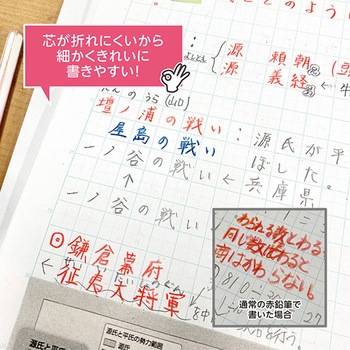 芯が折れにくいから
細かくきれいに
書きやすい!
どのよう
源 頼朝
よしつね
源 義経
だんのうら(山口)
壇ノ浦の戦い:源氏が平
屋島の戦い ぼした。
一ノ谷の戦い←兵庫県
↑
一ノ谷の戦い
鎌倉幕府
征夷大将軍
源氏と平氏の勢力範囲
源氏の
わられる数とわる
同じ数をわると
商はかわらない。
810÷
通常の赤鉛筆で
書いた場合